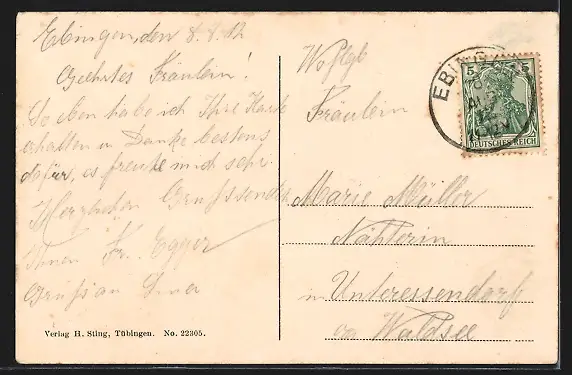 Ebingen, den 8. 4. 12
Geehrtes Fräulein!
So eben habe ich Ihre Karte
erhalten u Danke bestens
dafür, es freute mich sehr.
Herzlichen Gruss sendet
Ihnen Fr. Egger
Gruß an
Verlag H. Sting, Tübingen. No. 22305.
Wohlgb
Fräulein
Marie Müller
Nähterin
in Unteressendorf
oa Waldsee
EBINGEN
5 5
DEUTSCHES REICH